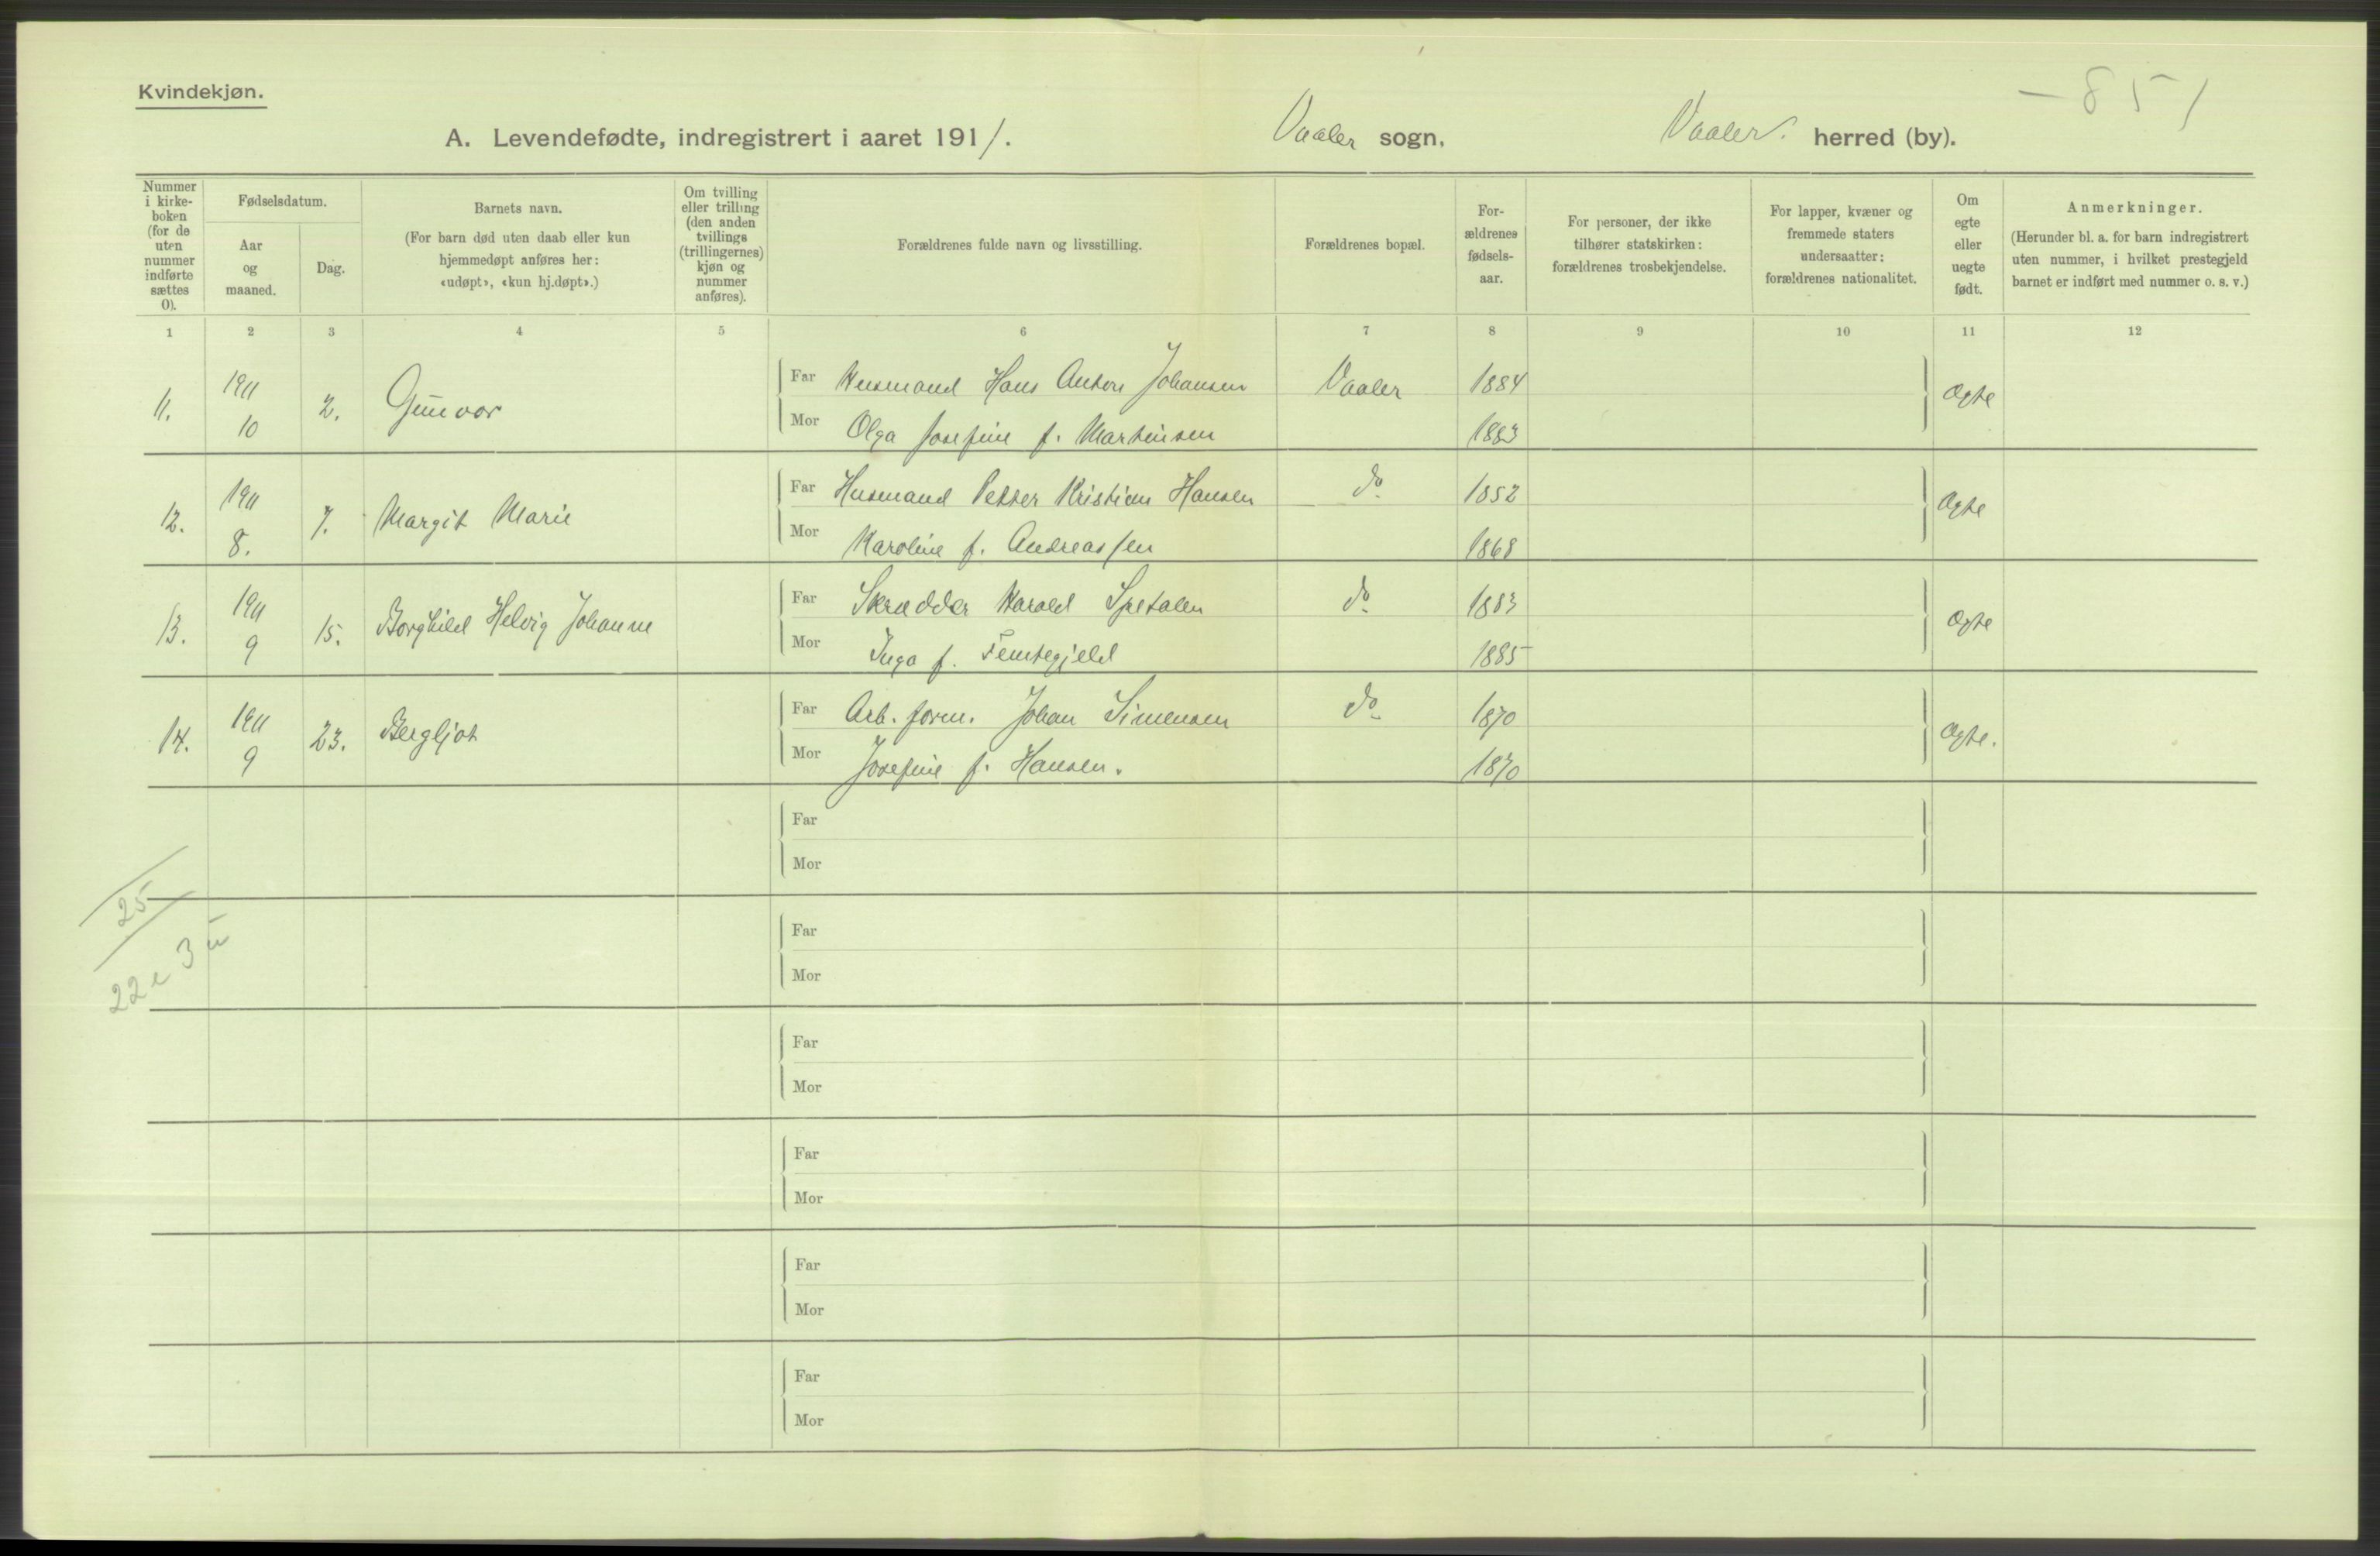 Kvindekjøn.
- 851
A. Levendefødte, indregistrert i aaret 1911. Vaaler sogn, Vaaler. herred (by).
Nummer i kirke-boken (for de uten nummer indførte sættes 0).
Fødselsdatum.
Aar og maaned.
Dag.
Barnets navn.
(For barn død uten daab eller kun hjemmedøpt anføres her: «udøpt», «kun hj.døpt».)
Om tvilling eller trilling (den anden tvillings (trillingernes) kjøn og nummer anføres).
Forældrenes fulde navn og livsstilling.
Forældrenes bopæl.
For-ældrenes fødsels-aar.
For personer, der ikke tilhører statskirken: forældrenes trosbekjendelse.
For lapper, kvæner og fremmede staters undersaatter: forældrenes nationalitet.
Om egte eller uegte født.
Anmerkninger.
(Herunder bl. a. for barn indregistrert uten nummer, i hvilket prestegjeld barnet er indført med nummer o. s. v.)
1 2 3 4 5 6 7 8 9 10 11 12
11. 1911 10 2. Gunvor Far Husmand Hans Anton Johansen Vaaler 1884 Ægte
Mor Olga Josefine f. Martinsen 1883
12. 1911 8. 7. Margit Marie Far Husmand Petter Kristian Hansen do 1852 Ægte
Mor Karoline f. Andreassen 1868
13. 1911 9 15. Borghild Helvig Johanne Far Skrædder Harald Spetalen do 1883 Ægte
Mor Inga f. Femtegjeld 1885
14. 1911 9 23. Bergljot Far Arb. form. Johan Simensen do 1870 Ægte.
Mor Josefine f. Hansen. 1870
Far
Mor
25
Far
Mor
22 e 3 u
Far
Mor
Far
Mor
Far
Mor
Far
Mor